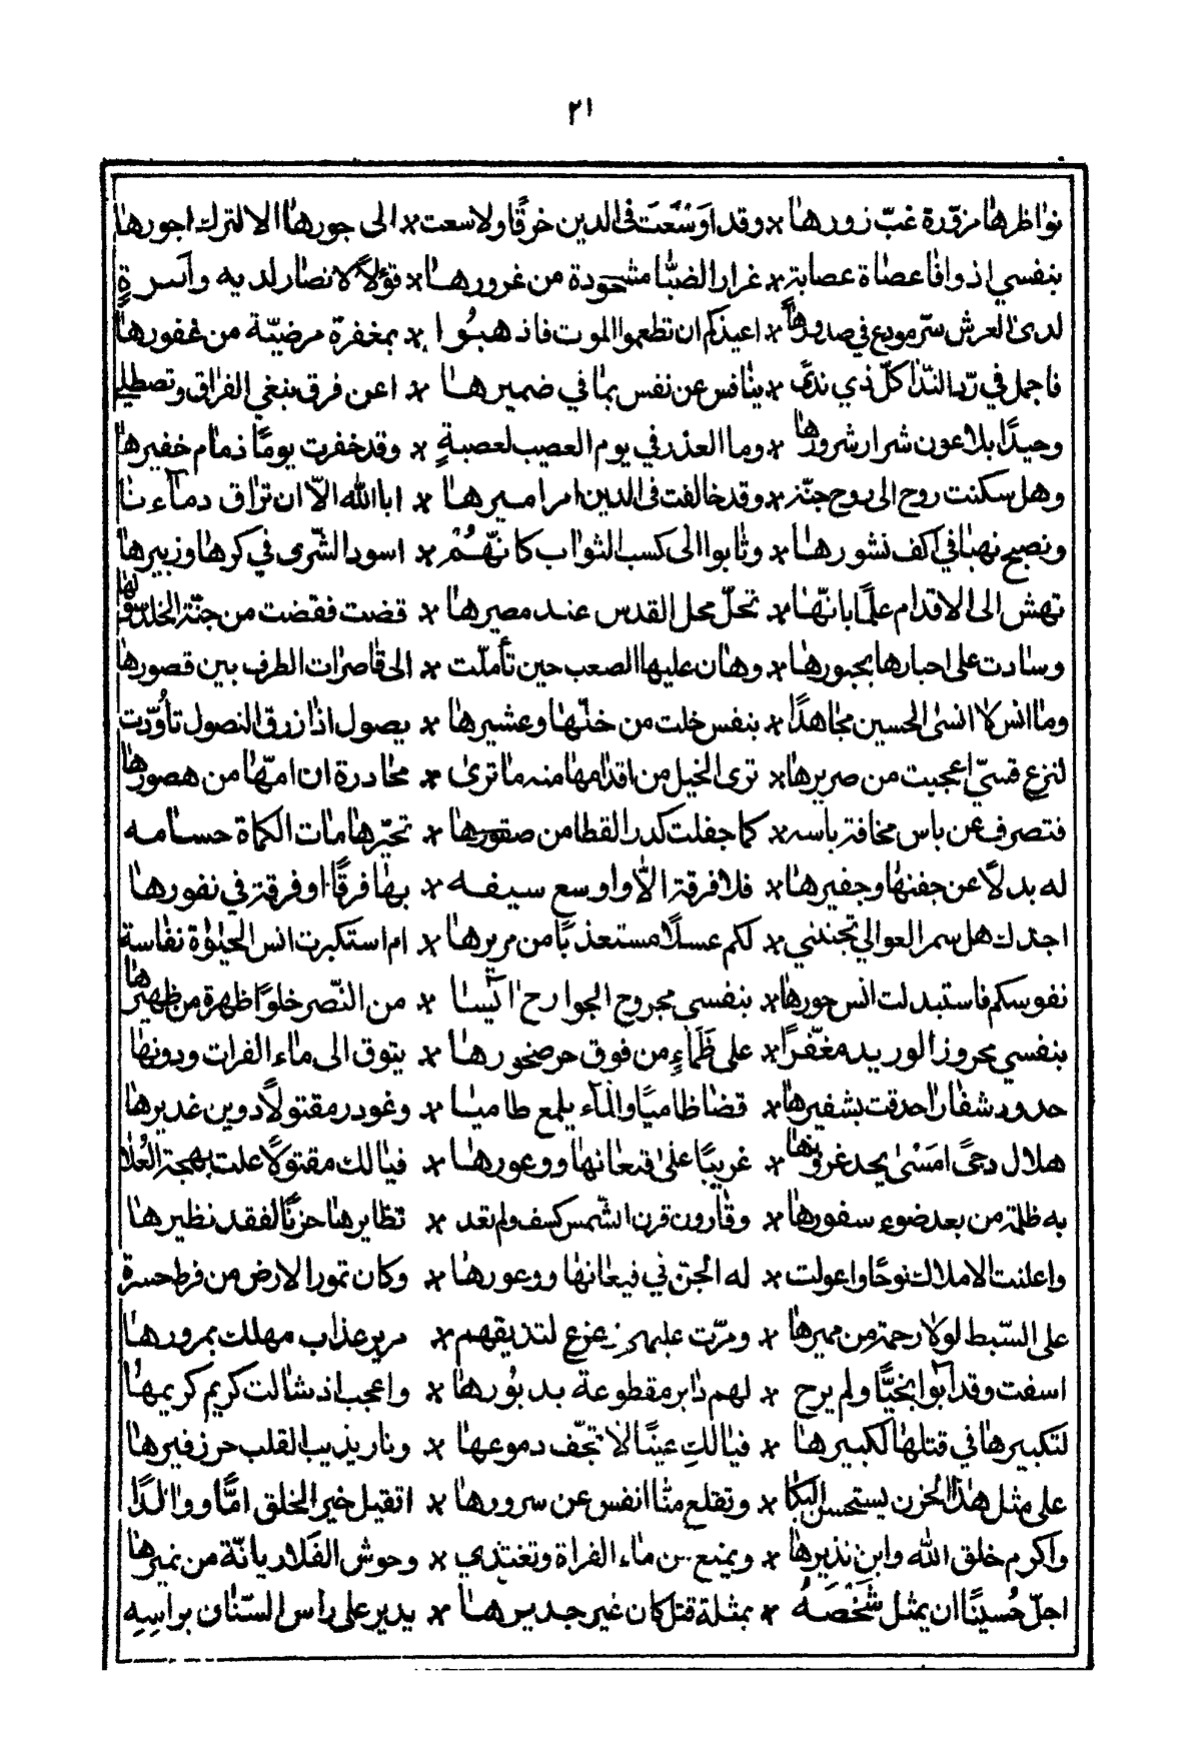 ٢١
نواظرها مزورّة غبّ زورها * وقد اوسعت فى الدين خرقًا ولا سعت * الى جورها الا لترك اجورها
بنفسي اذ وافا عصاة عصابة * غرار الضبّا مشحوذة من غرورها * قؤلاً لانصار لديه وأسرةٍ
لدى العرش سرّ مودع في صدورها * اعيذكم ان تطعموا الموت فاذهبُوا * بمغفرة مرضيّة من غفورها
فاجمل في ردّ النّدا كلّ ذي ندًى * ينافس عن نفس بما في ضميرها * اعن فرق نبغي الفراق وتصطلي
وحيدًا بلا عون شرار شرورها * وما العذر في يوم العصيب لعصبةٍ * وقد خفرت يومًا ذمام خفيرها
وهل سكنت روح الى روح جنّة * وقد خالفت فى الدين امر اميرها * ابا الله الاّ ان تراق دمآءنا
ونصبح نهبا في اكف نشورها * وثابوا الى كسب الثواب كانّهُمْ * اسود الشّرى في كرها وزبيرها
تهش الى الاقدام علمًا بانّها * تحلّ محل القدس عند مصيرها * قضت فقضت من جنّة الخلد سؤلها
وسادت على احبارها بحبورها * وهان عليها الصعب حين تأملت * الى قاصرات الطرف بين قصورها
وما انس لا انسى الحسين مجاهدًا * بنفس خلت من خلّها وعشيرها * يصول اذا زرق النصول تأوّدت
لنزع قسيّ اعجبت من صريرها * ترى الخيل من اقدامها منه ما ترى * محاذرة ان امّها من هصورها
فتصرف عن باس مخافة باسه * كما جفلت كدر القطا من صقورها * تحيّر هامات الكماة حسامه
له بدلاً عن جفنها وجفيرها * فلا فرقة الاّ واوسع سيفه * بها فرقًا او فرقة في نفورها
اجدك هل سمر العوالي تجتني * لكم عسلًا مستعذبًا من مريرها * ام استكبرت انس الحيٰوة نفاسة
نفوسكم فاستبدلت انس حورها * بنفسي مجروح الجوارح آئسا * من النّصر خلوًا ظهرة من ظهيرها
بنفسي محزوز الوريد معفّرًا * على ظَمَاءٍ من فوق حر صخورها * يتوق الى ماء الفرات ودونها
حدود شفار احدقت بشفيرها * قضا ظاميًا والمآء يلمع طاميا * وغودر مقتولًا دوين غديرها
هلال دجىً امسىٰ بحد غروبها * غريبًا على قيعانها ووعورها * فيالك مقتولًا علت بهجة العُلا
به ظلمة من بعد ضوء سفورها * وقارون قرن الشّمس كسف ولم تعد * تظايرها حزنًا لفقد نظيرها
واعلنت الاملاك نوحًا واعولت * له الجنّ في قيعانها ووعورها * وكان تمور الارض من فرط حسرة
على السّبط لولا رحمة من مميرها * ومرّت عليهم زعزع لتذيقهم * مرير عذاب مهلك بمرورها
اسفت وقد آبوا نجيًّا ولم يرح * لهم دابر مقطوعة بدبُورها * واعجب اذ شالت كريم كريمها
لتكبيرها في قتلها لكبيرها * فيالكِ عينًا لا تجّف دموعها * ونار يذيب القلب حر زفيرها
على مثل هذا الحزن يستحسن البكا * وتقلع منّا انفس عن سرورها * اتقيل خير الخلق امًّا ووالدًا
واكرم خلق الله وابن نذيرها * ويمنع من ماء الفراة وتغتدي * وحوش الفلا ريانة من نميرها
اجلّ حُسينًا ان يمثل شَخْصَهُ * بمثلة قتل كان غير جديرها * يدير على راس السّنان براسِهِ